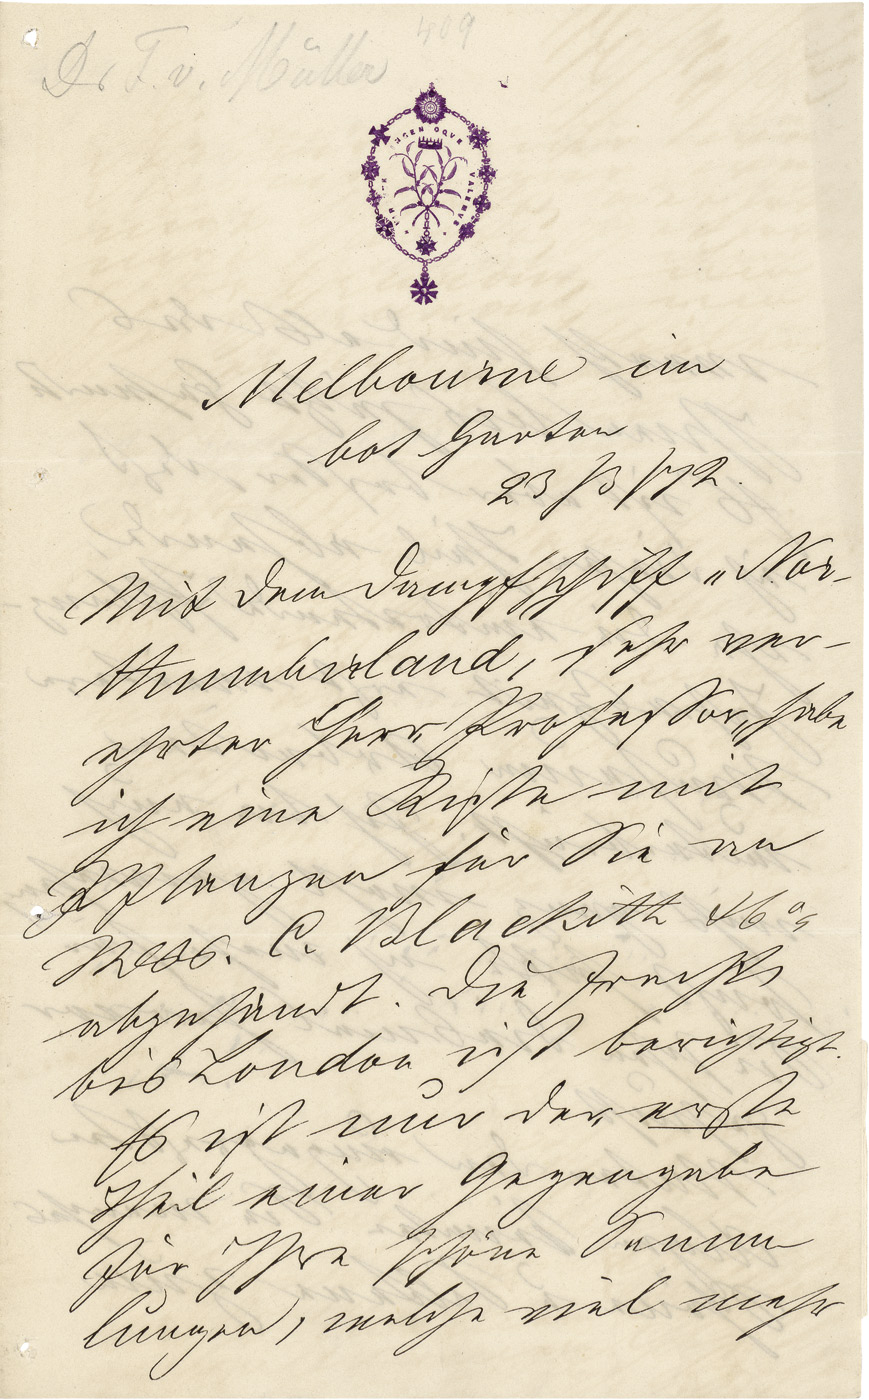 409
Dr F. v. Müller
Melbourne im
bot Garten
23/3/72.
Mit dem Dampfschiff „Nor-
thumberland, sehr ver-
ehrter Herr Professor, habe
ich eine Kiste mit
Pflanzen für Sie an
Mess. C. Blackith &
abgesandt. Die Fracht
bis London ist berichtigt.
Es ist nur der erste
Theil einer Gegengabe
für Ihre schöne Samm
lungen, welche viel mehr